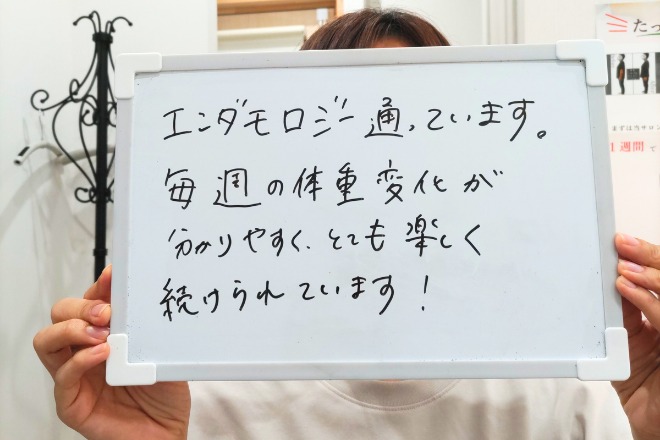 エンダモロジー通っています。
毎週の体重変化が
分かりやすく、とても楽しく
続けられています！
たっ
まずは当サロン
1週間で